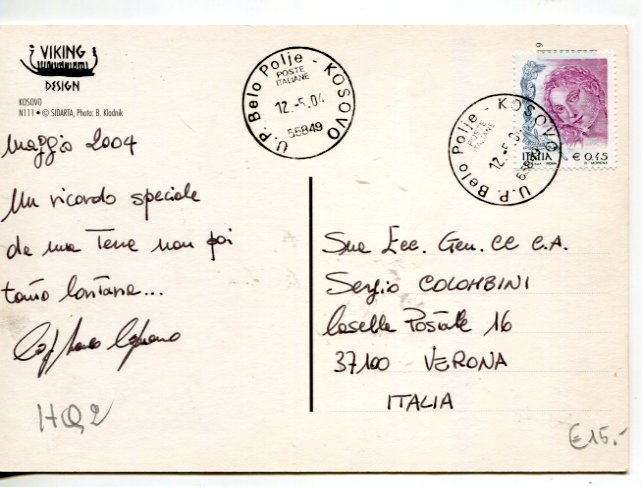 VIKING
DESIGN
KOSOVO
N111 • © SIDARTA, Photo: B. Kladnik
U.P. Belo Polje - KOSOVO
POSTE
ITALIANE
12.-5.04
55849
U.P. Belo Polje - KOSOVO
POSTE
ITALIANE
12.-5.0
5584
ITALIA € 0,45
Maggio 2004
Un ricordo speciale
da una Terra non poi
tanto lontana...
Sua Ecc. Gen. CC C.A.
Sergio COLOMBINI
Casella Postale 16
37100 VERONA
ITALIA
HQ2
€15.-